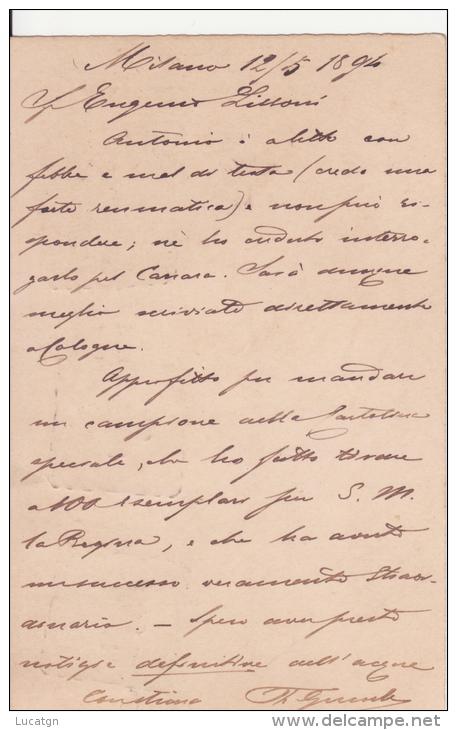 Milano 12/5 1894
Eugenio Lissoni
Antonio è a letto con
febbre e mal di testa (credo una
forte reumatica) e non può ris-
pondere; nè ho creduto interro-
garlo pel Canara. Sarà dunque
meglio scriviate direttamente
a Cologne.
Approfitto per mandare
un campione della Cartolina
speciale, che ho fatto tirare
a 100 esemplari per S. M.
la Regina, e che ha avuto
un successo veramente straor-
dinario. — Spero aver presto
notizie definitive dell'acque
Lucatgn
www.delcampe.net